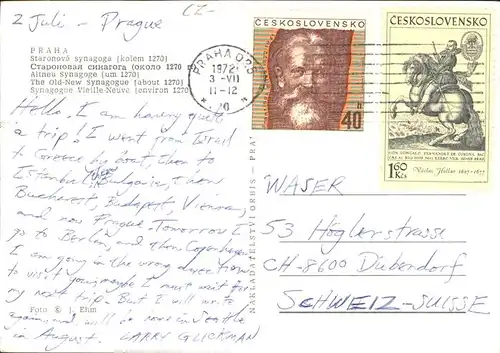 2 Juli - Prague
CZ-
PRAHA
Staronová synagoga (kolem 1270)
Староновая синагога (около 1270
Altneu Synagoge (um 1270)
The Old-New Synagogue (about 1270)
Synagogue Vieille-Neuve (environ 1270
Hello. I am having quite
a trip! I went from Israel
to Greece by boat, then to
Istanbul, Bulgaria, then
Bucharest, Budapest, Vienna,
and now Prague. Tomorrow I
go to Berlin, and then Copenhagen.
I am going in the wrong direction
to visit you, maybe I must wait for
my next trip. But I will write
again, and will be home in Seattle
in August. LARRY GLICKMAN
Foto © J. Ehm
NAKLADATELSTVÍ ORBIS - PRA
ČESKOSLOVENSKO
40 h
PRAHA 025
1972
3-VII
11-12
* 70 *
ČESKOSLOVENSKO
DON GONSALO FERNANDES DE CORDOVA
1,60 Kčs
Václav Hollar 1607-1677
WASER
53 Höglerstrasse
CH-8600 Dübendorf
SCHWEIZ-SUISSE